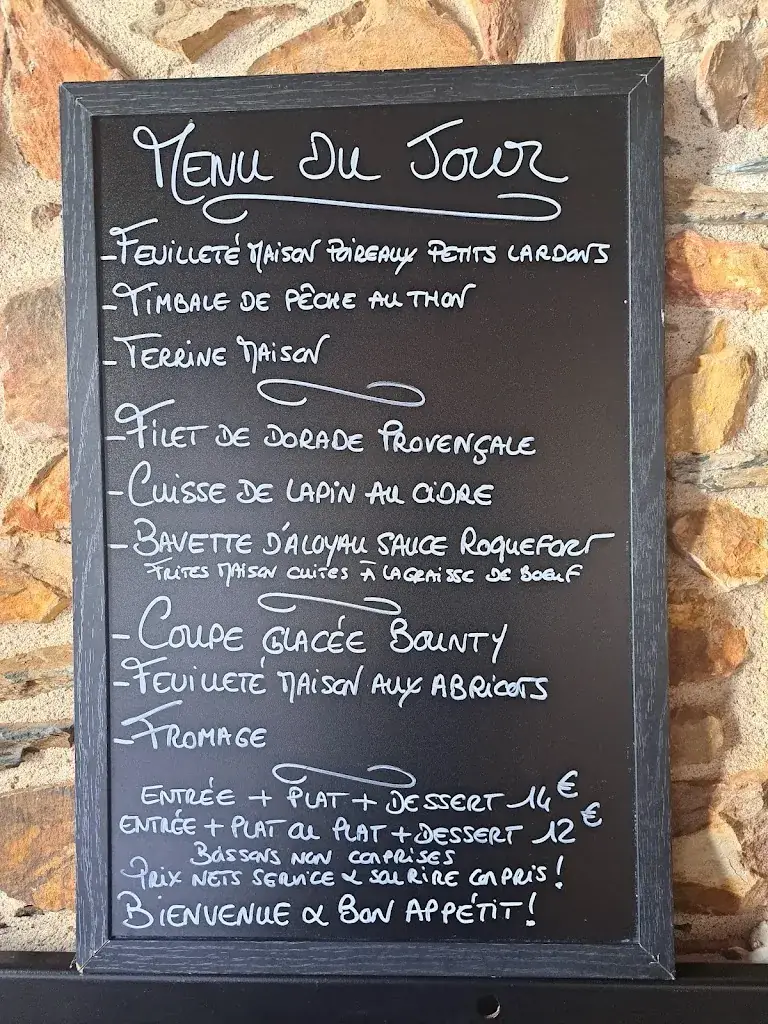 MENU DU JOUR
- FEUILLETÉ MAISON POIREAUX PETITS LARDONS
- TIMBALE DE PÊCHE AU THON
- TERRINE MAISON
- FILET DE DORADE PROVENÇALE
- CUISSE DE LAPIN AU CIDRE
- BAVETTE D'ALOYAU SAUCE ROQUEFORT
FRITES MAISON CUITES À LA GRAISSE DE BOEUF
- COUPE GLACÉE BOUNTY
- FEUILLETÉ MAISON AUX ABRICOTS
- FROMAGE
ENTRÉE + PLAT + DESSERT 14€
ENTRÉE + PLAT OU PLAT + DESSERT 12€
BOISSONS NON COMPRISES
PRIX NETS SERVICE & SOURIRE COMPRIS!
BIENVENUE & BON APPÉTIT!